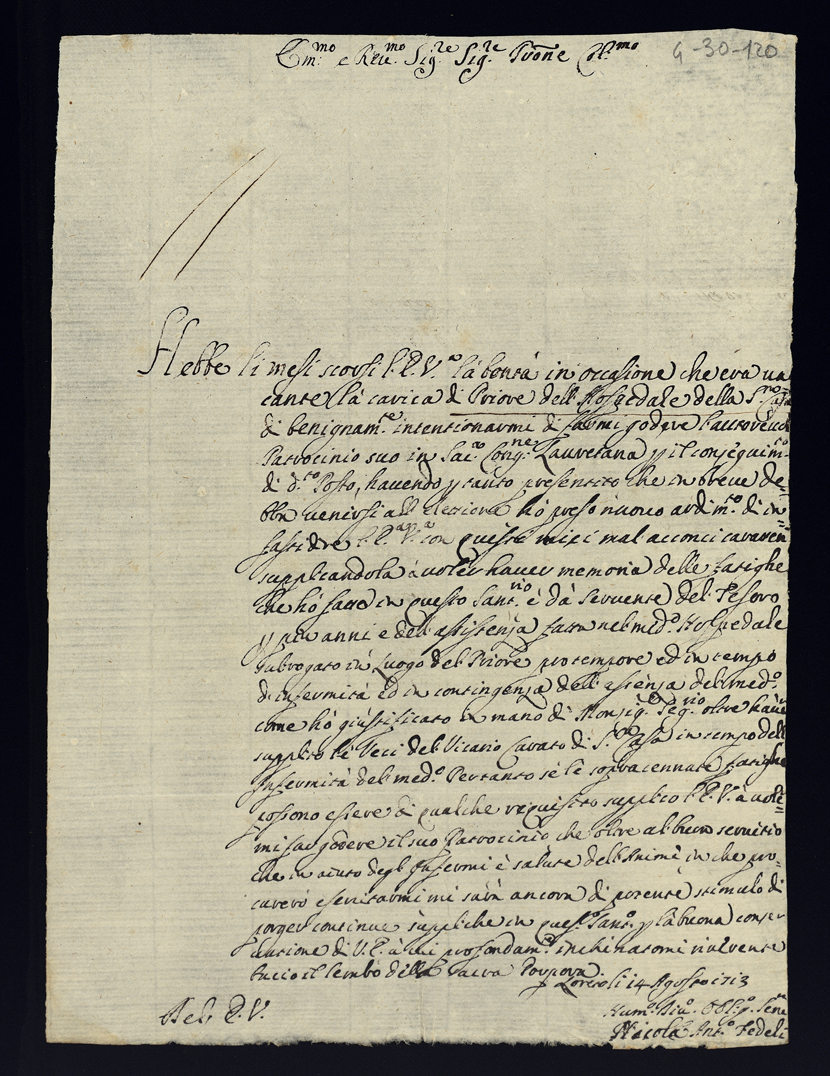 Em.mo e Rev.mo Sig.re Sig.re Prōne Col.mo
G-30-120
Hebbe li mesi scorsi l'E.V.a la bontà in occasione che era va
cante la carica di Priore dell'Hospedale della S.ma Casa
di benignam.te intentionarmi di farmi godere l'autorevol
Patrocinio suo in Sac.a Cong.ne Lauretana p il conseguim.to
di d.to Posto, havendo p tanto presentito che in breve de=
bba venirsi all'elettione hò preso nuovo ardim.to di in=
fastidire l'E.V.a con questi miei mal acconci caratteri
supplicandola à voler haver memoria delle fatighe
che hò fatto in questo Sant.rio e dà servente del Tesoro
p più anni e dell'assistenza fatta nel med.o Hospedale
subrogato in Luogo del Priore pro tempore ed in tempo
d'infermità ed in contingenza dell'assenza del med.o
come hò giustificato in mano di Monsig.r Seg.rio oltre haver
supplito le Veci del Vicario Curato di S.ta Casa in tempo dell
Infermità del med.o Pertanto se le sopracennate fatighe
possono essere di qualche requisito supplico l'E.V. à voler=
mi far godere il suo Patrocinio che oltre al buon servitio
che in aiuto degl'Infermi e salute dell'Anime in che pro=
curerò esercitarmi mi sarà ancora di potente stimulo di
porger continue suppliche in quest.o Sant.o p la buona conser
vatione di V.E. à cui profondam.te inchinatomi riverente
bacio il lembo della sacra Porpora
Loreto li 14 Agosto 1713
Dell'E.V.
Hum.o Div.o Obblig.o Serv.re
Nicola Ant.o Fedeli